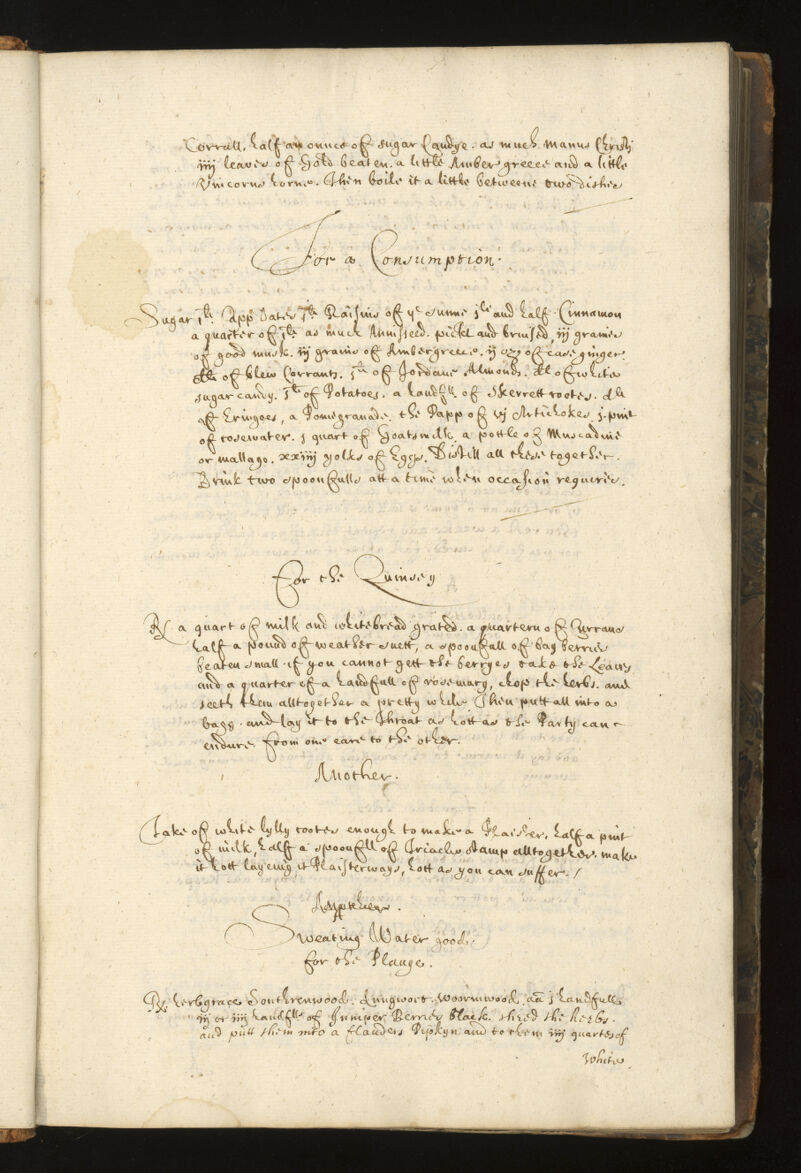 Corrall, half an ounce of sugar Candye. as much Manus Christi
iiij leaves of Gold beaten. a little Amber greece and a little
Vnicorns horne. Then boile it a little betweene two dishes
For a Consumption.
Sugar 1li. Dates 1li Raisins of ye sunne 1li and half Cinnamon
a quarter of 1li as much Anniseed. pickt and bruised, iij graines
of good musk. iij grains of Ambergreece. ij oz of case ginger.
of blew Corrants. 1li of Jordane Almonds. of white
sugar candy. 1li of Potatoes. a handfll of Skerrett rootes.
of Eringoes, a Pomegranade. the Papp of vj Artichokes j. pint
of rosewater. j quart of Goats milk a pottle of Muscadine
or mallago. xxiiij yolks of Eggs. Distill all these together.
Drink two spoonfulls att a time when occasion requires.
For the Quinsey
Rx a quart of milk and whitebread grated. a quartern of Currans
half a pound of weather suett, a spoonfull of bay berries
beaten small if you cannot gett the berryes take the Leaves
and a quarter of a handfull of rosemary, chop the herbs. and
seeth them alltogether a pretty while Then putt all into a
bagg. and lay it to the throat as hott as the Party can
endure from one eare to the other.
Another.
Take of white lylly rootes enough to make a Plaister, half a pint
of milk, half a spoonfll of Triacle stamp alltogether. make
it hott layeing it Plaisterways, hott as you can suffer. /
Sweating Water good
for the Plauge.
Rx herbgrace Southrenwood. Lungwort. Woormwood. aā j handfull
iij or iiij handflls of Juniper Berries black. shred the herbs.
and putt them into a flanders Pipkyn and to them iiij quartes of
White